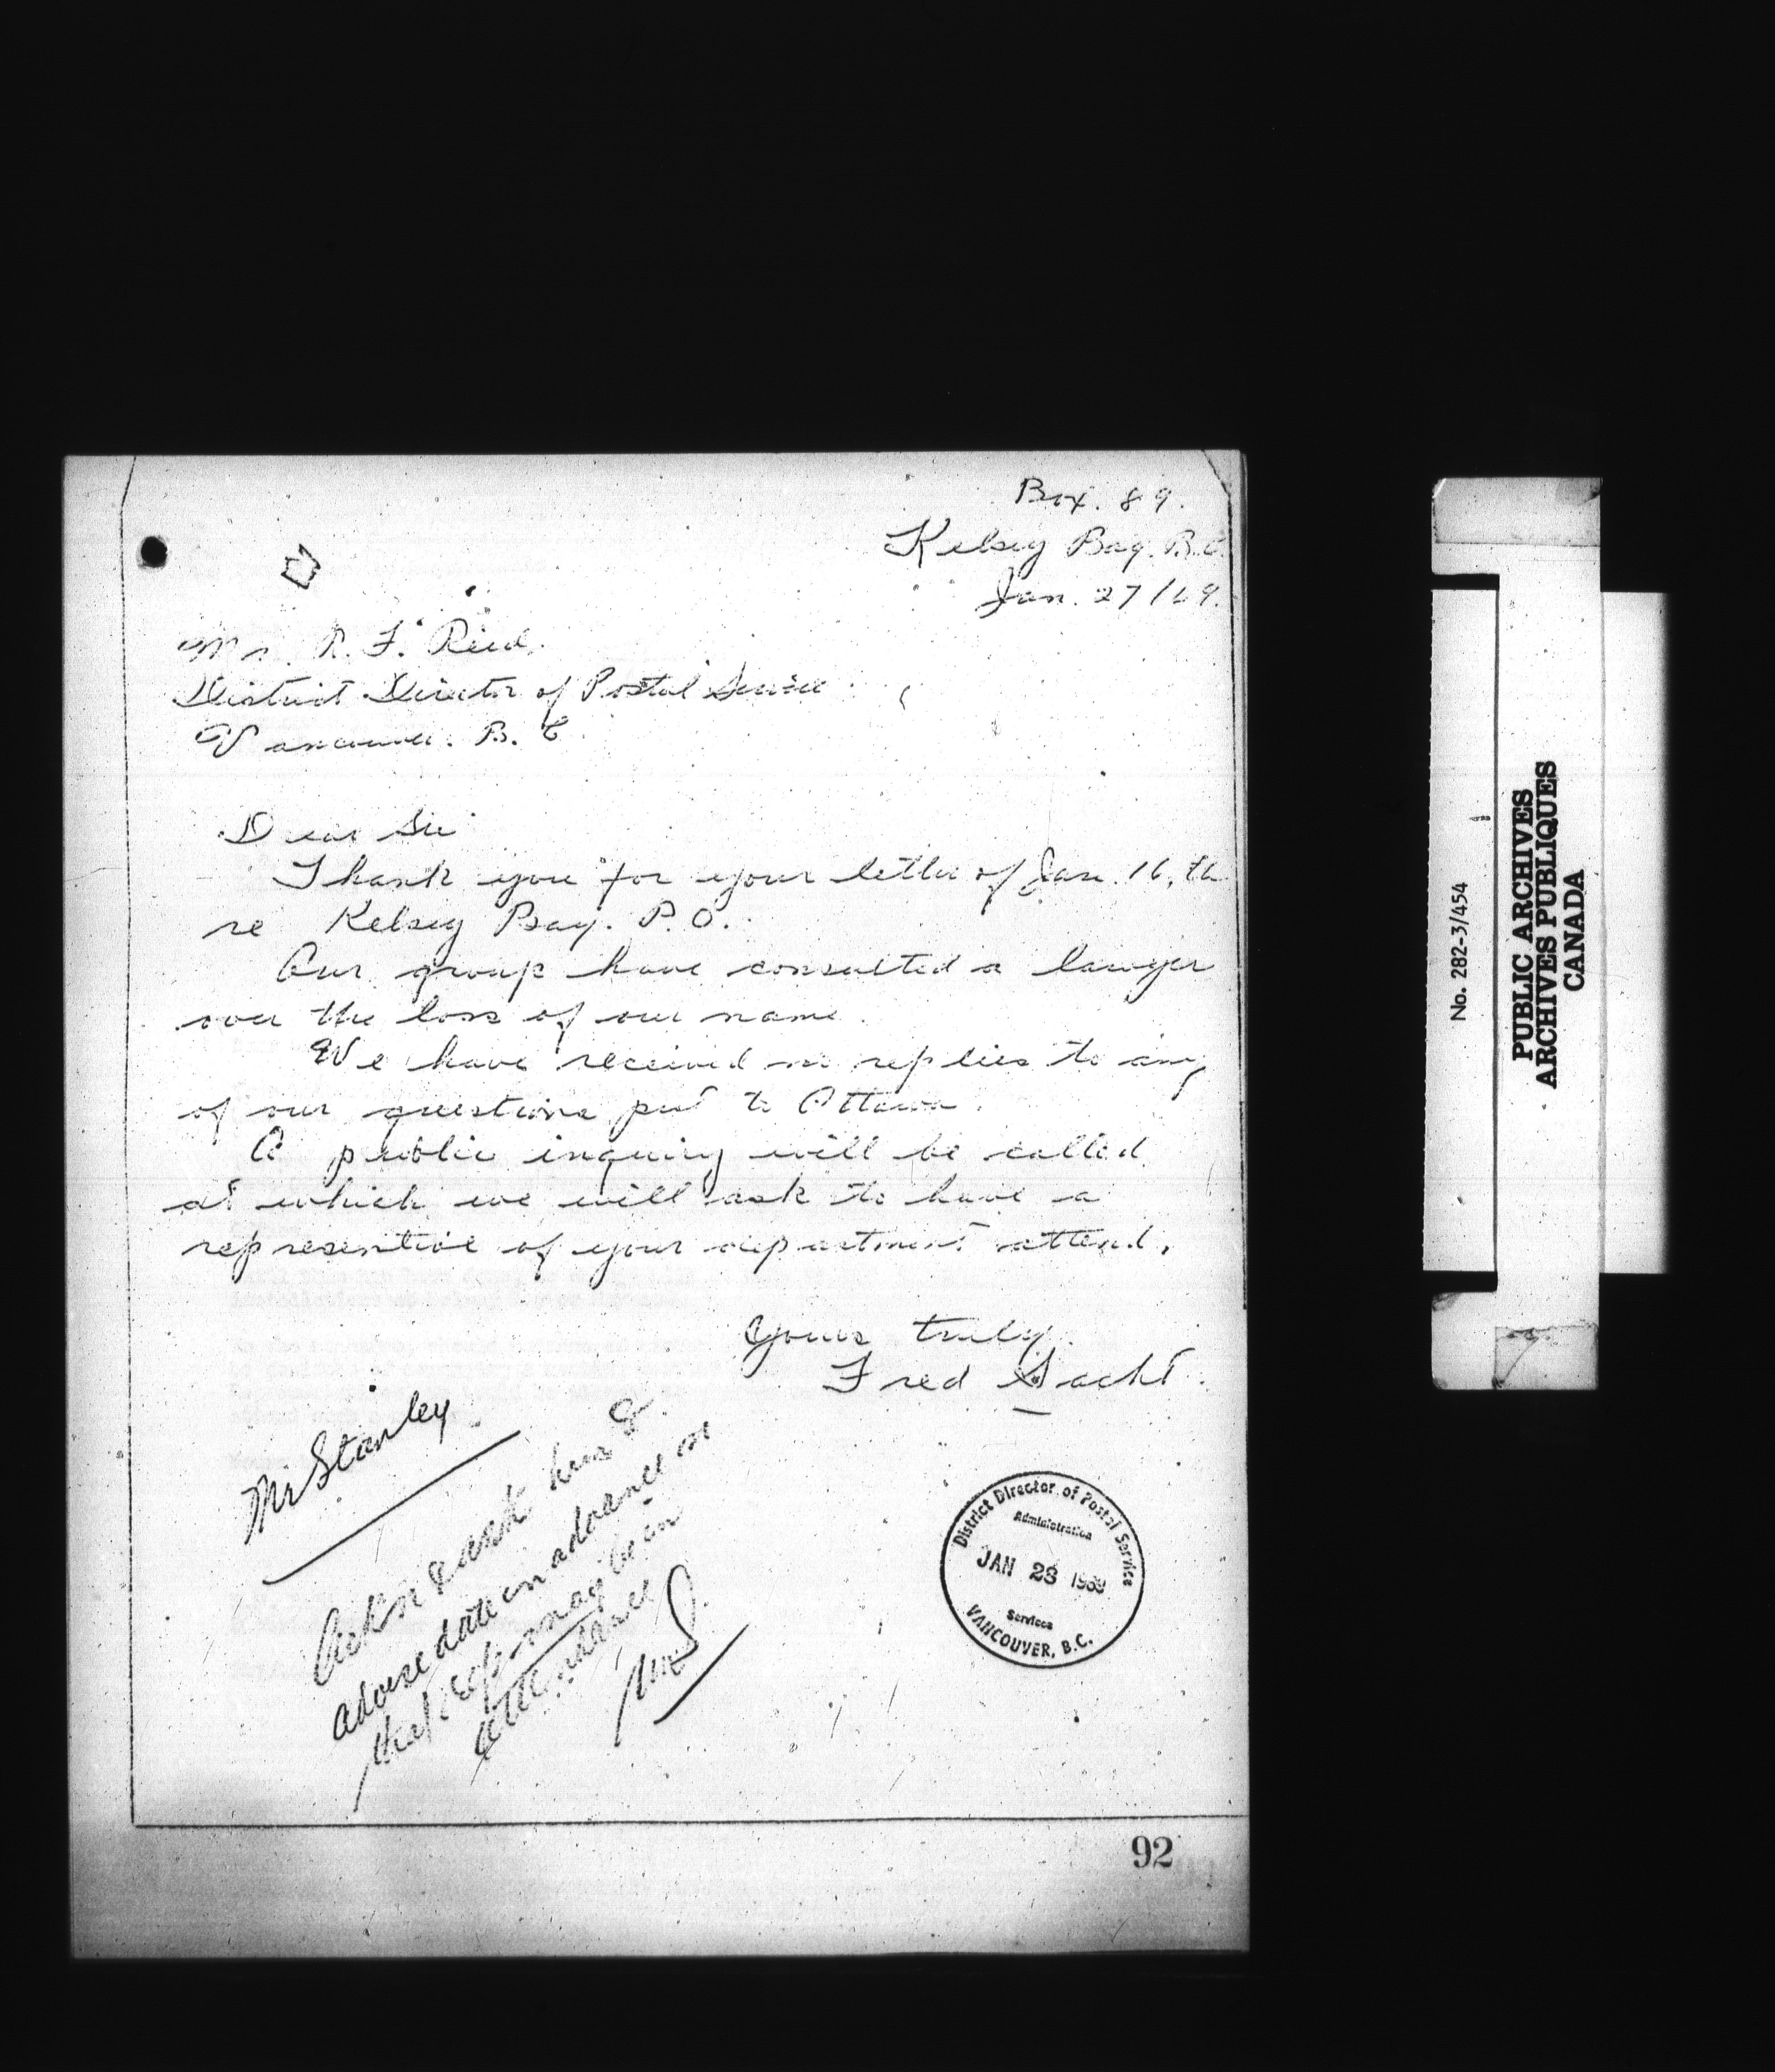 Box. 89.
Kelsey Bay. B.C.
Jan. 27/69.
Mr. R. F. Reid.
District Director of Postal Service
Vancouver. B. C.
Dear Sir
Thank you for your letter of Jan. 16, th
re Kelsey Bay. P.O.
Our group have consulted a lawyer
over the loss of our name.
We have received no replies to any
of our questions put to Ottawa.
A public inquiry will be called
at which we will ask to have a
representive of your department attend.
Yours truly.
Fred Sacht.
Mr Stanley
Ack'n & ask him to
advise date in advance so
that rep. may be in
attendance
District Director of Postal Service
Administration
JAN 28 1969
Services
VANCOUVER, B.C.
92
No. 282-3/454
PUBLIC ARCHIVES
ARCHIVES PUBLIQUES
CANADA